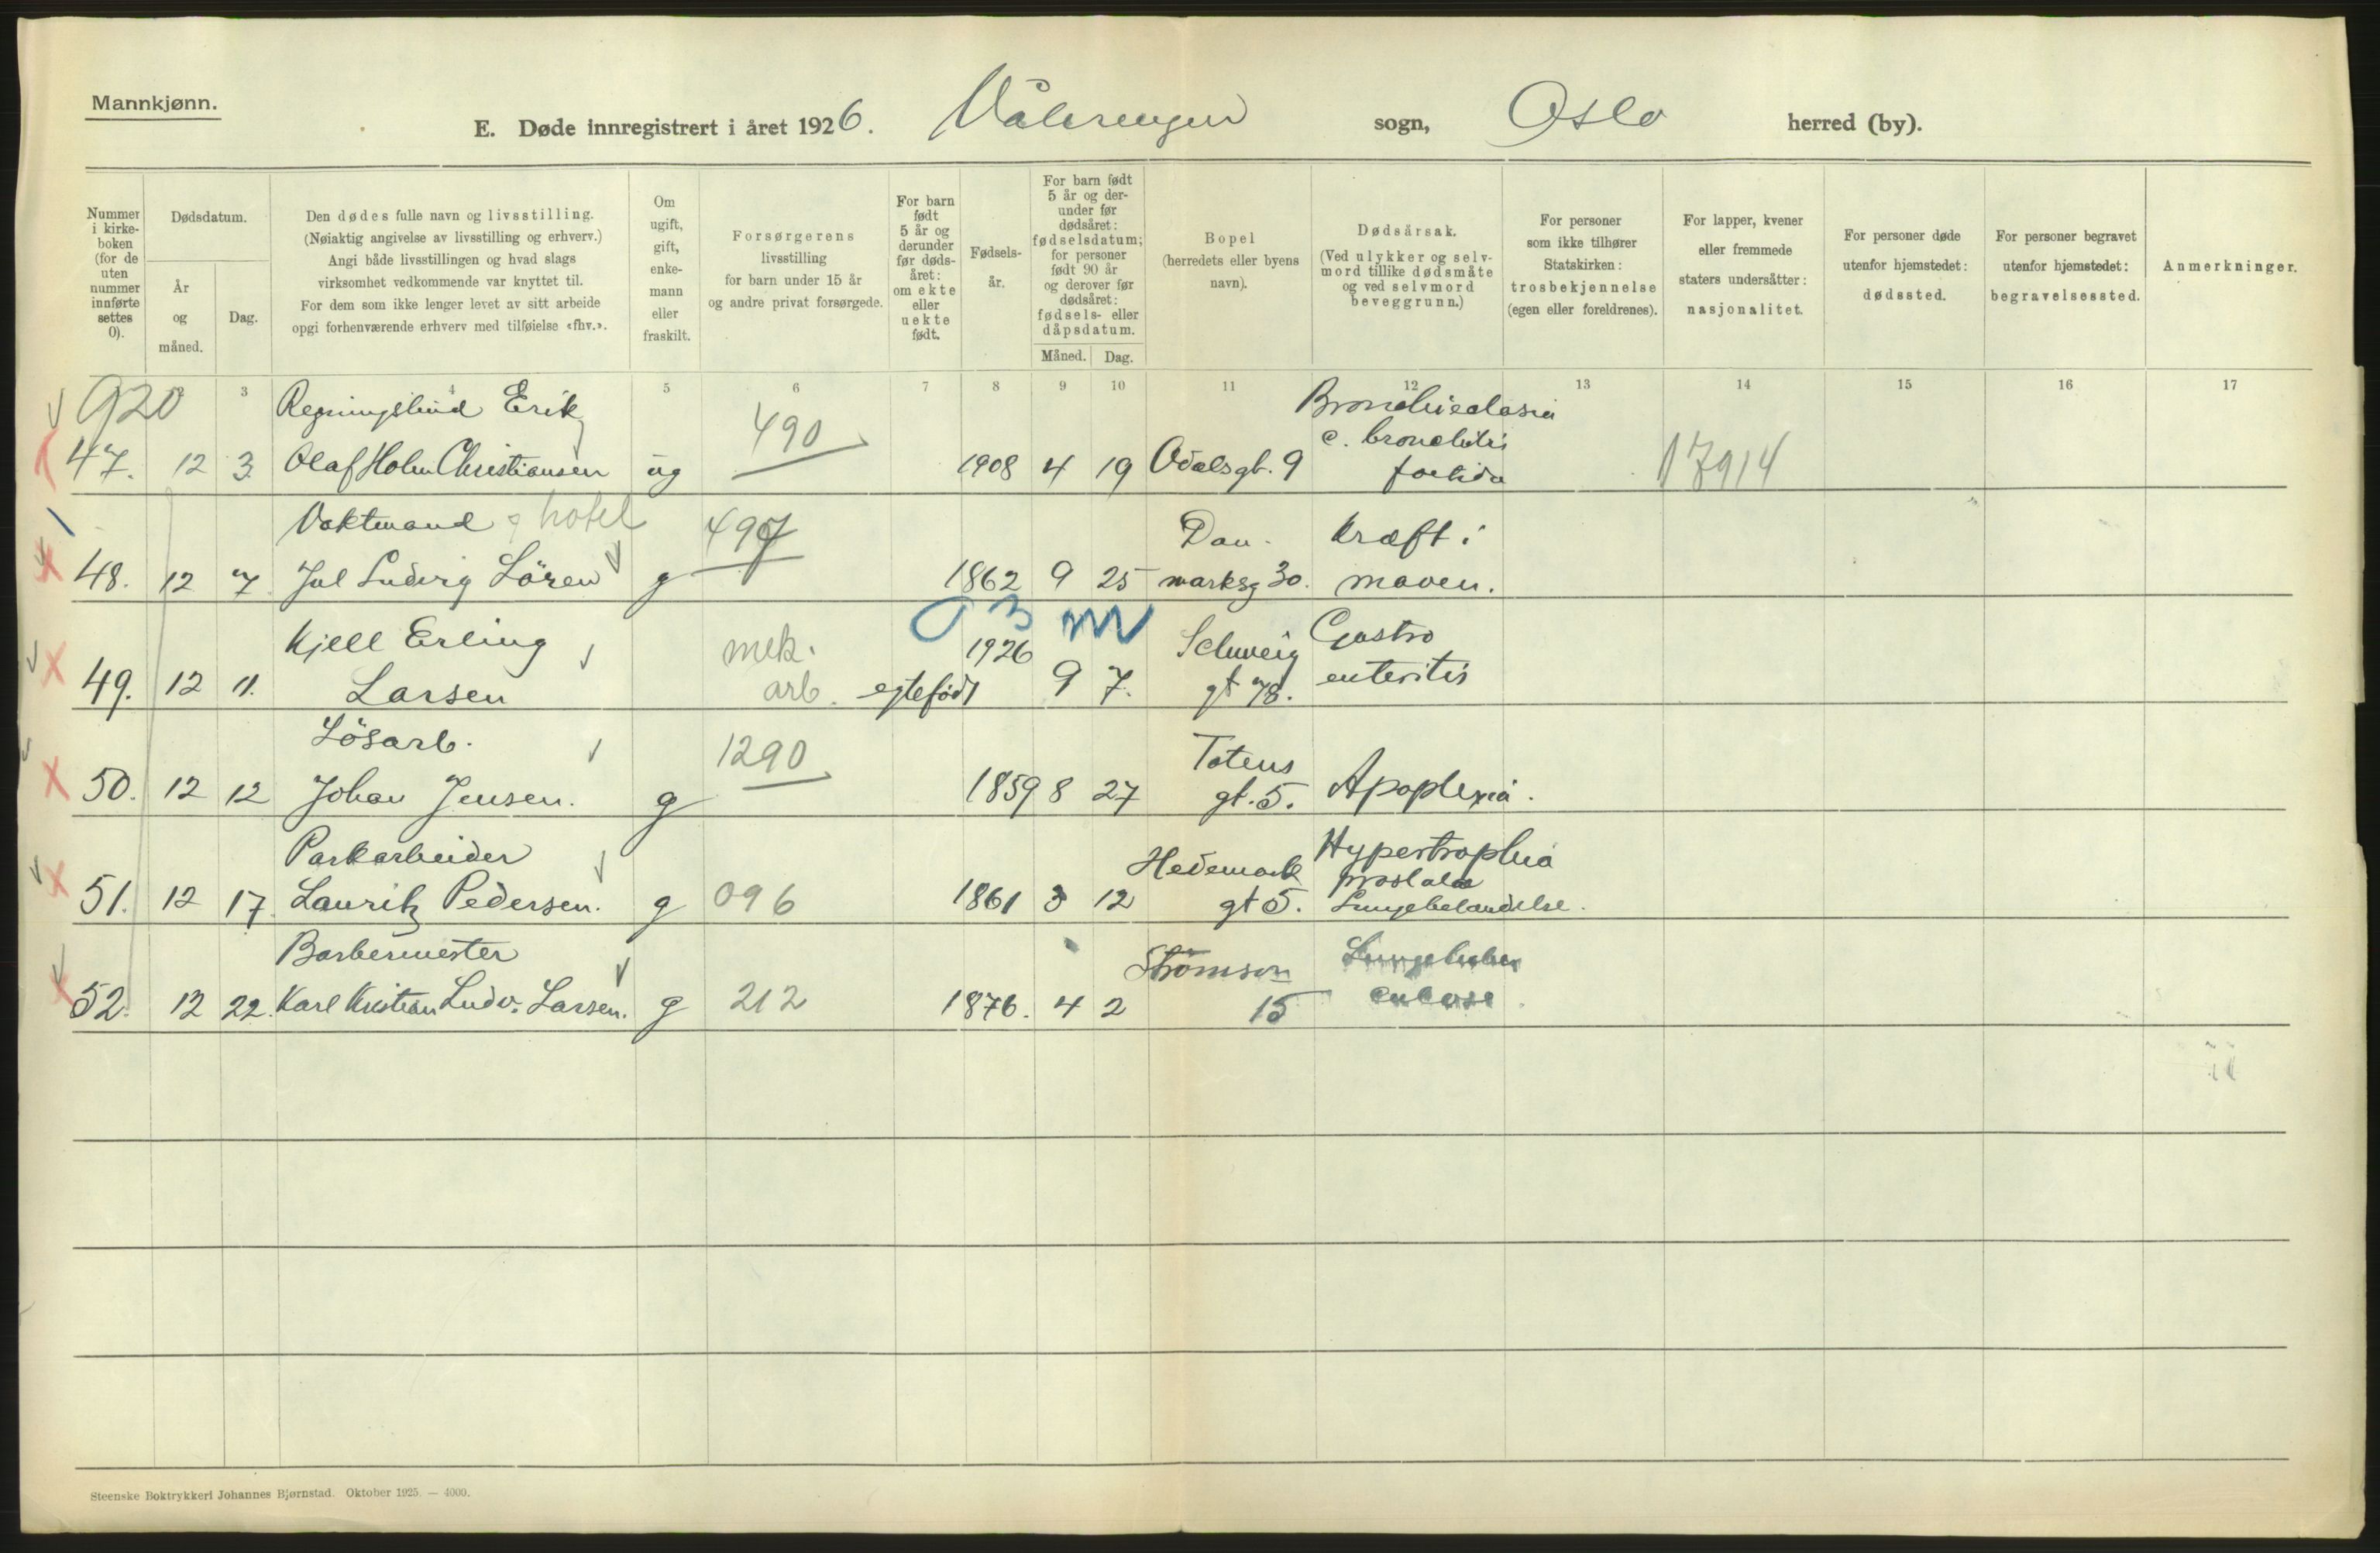 Mannkjønn.
E. Døde innregistrert i året 1926. Vålerengen sogn, Oslo herred (by).
Nummer i kirke-boken (for de uten nummer innførte settes 0).
Dødsdatum.
År og måned.
Dag.
Den dødes fulle navn og livsstilling.
(Nøiaktig angivelse av livsstilling og erhverv.)
Angi både livsstillingen og hvad slags
virksomhet vedkommende var knyttet til.
For dem som ikke lenger levet av sitt arbeide
opgi forhenværende erhverv med tilføielse «fhv.».
Om ugift, gift, enke-mann eller fraskilt.
Forsørgerens
livsstilling
for barn under 15 år
og andre privat forsørgede.
For barn født 5 år og derunder før døds-året: om ekte eller uekte født.
Fødsels-år.
For barn født 5 år og der-under før dødsåret: fødselsdatum; for personer født 90 år og derover før dødsåret: fødsels- eller dåpsdatum.
Måned. Dag.
Bopel
(herredets eller byens
navn).
Dødsårsak.
(Ved ulykker og selv-mord tillike dødsmåte og ved selvmord beveggrunn.)
For personer
som ikke tilhører
Statskirken:
trosbekjennelse
(egen eller foreldrenes).
For lapper, kvener
eller fremmede
staters undersåtter:
nasjonalitet.
For personer døde
utenfor hjemstedet:
dødssted.
For personer begravet
utenfor hjemstedet:
begravelsessted.
Anmerkninger.
3 4 5 6 7 8 9 10 11 12 13 14 15 16 17
920 Regningsbud Erik 490 Bronchiectasia
c. bronchitis
47. 12 3. Olaf Holm Christiansen ug 1908 4 19 Odalsgt. 9 foetida 17914
Vaktmand hotel 497 Dan- Kræft i
48. 12 7. Jul Ludvig Lören g 1862 9 25 marksg 30. maven.
03 m
Kjell Erling mek. 1926 Schweig Gastro
49. 12 11. Larsen arb. egtefödt 9 7. gt 78. enteritis
Lösarb. 1290 Totens
50. 12 12 Johan Jensen. g 1859 8 27 gt. 5. Apoplexia.
Parkarbeider Hedemark Hypertrophia
prostatae
51. 12 17 Lauritz Pedersen. g 096 1861 3 12 gt 5. Lungebetændelse.
Barbermester Strömsv Lungetuber
52. 12 22. Karl Kristian Ludv. Larsen. g 212 1876. 4 2 15 culose.
Steenske Boktrykkeri Johannes Bjørnstad. Oktober 1925. — 4000.